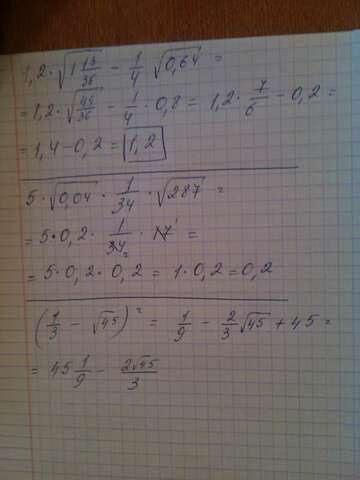 1,2 · √(1 13/36) − 1/4 √0,64 =
= 1,2 · √(45/36) − 1/4 · 0,8 = 1,2 · 7/6 − 0,2 =
= 1,4 − 0,2 = 1,2
5 · √0,04 · 1/34 · √287 =
= 5 · 0,2 · 1/34 2 · 17 1 =
= 5 · 0,2 · 0,2 = 1 · 0,2 = 0,2
(1/3 − √45)² = 1/9 − 2/3 √45 + 45 =
= 45 1/9 − 2√45/3